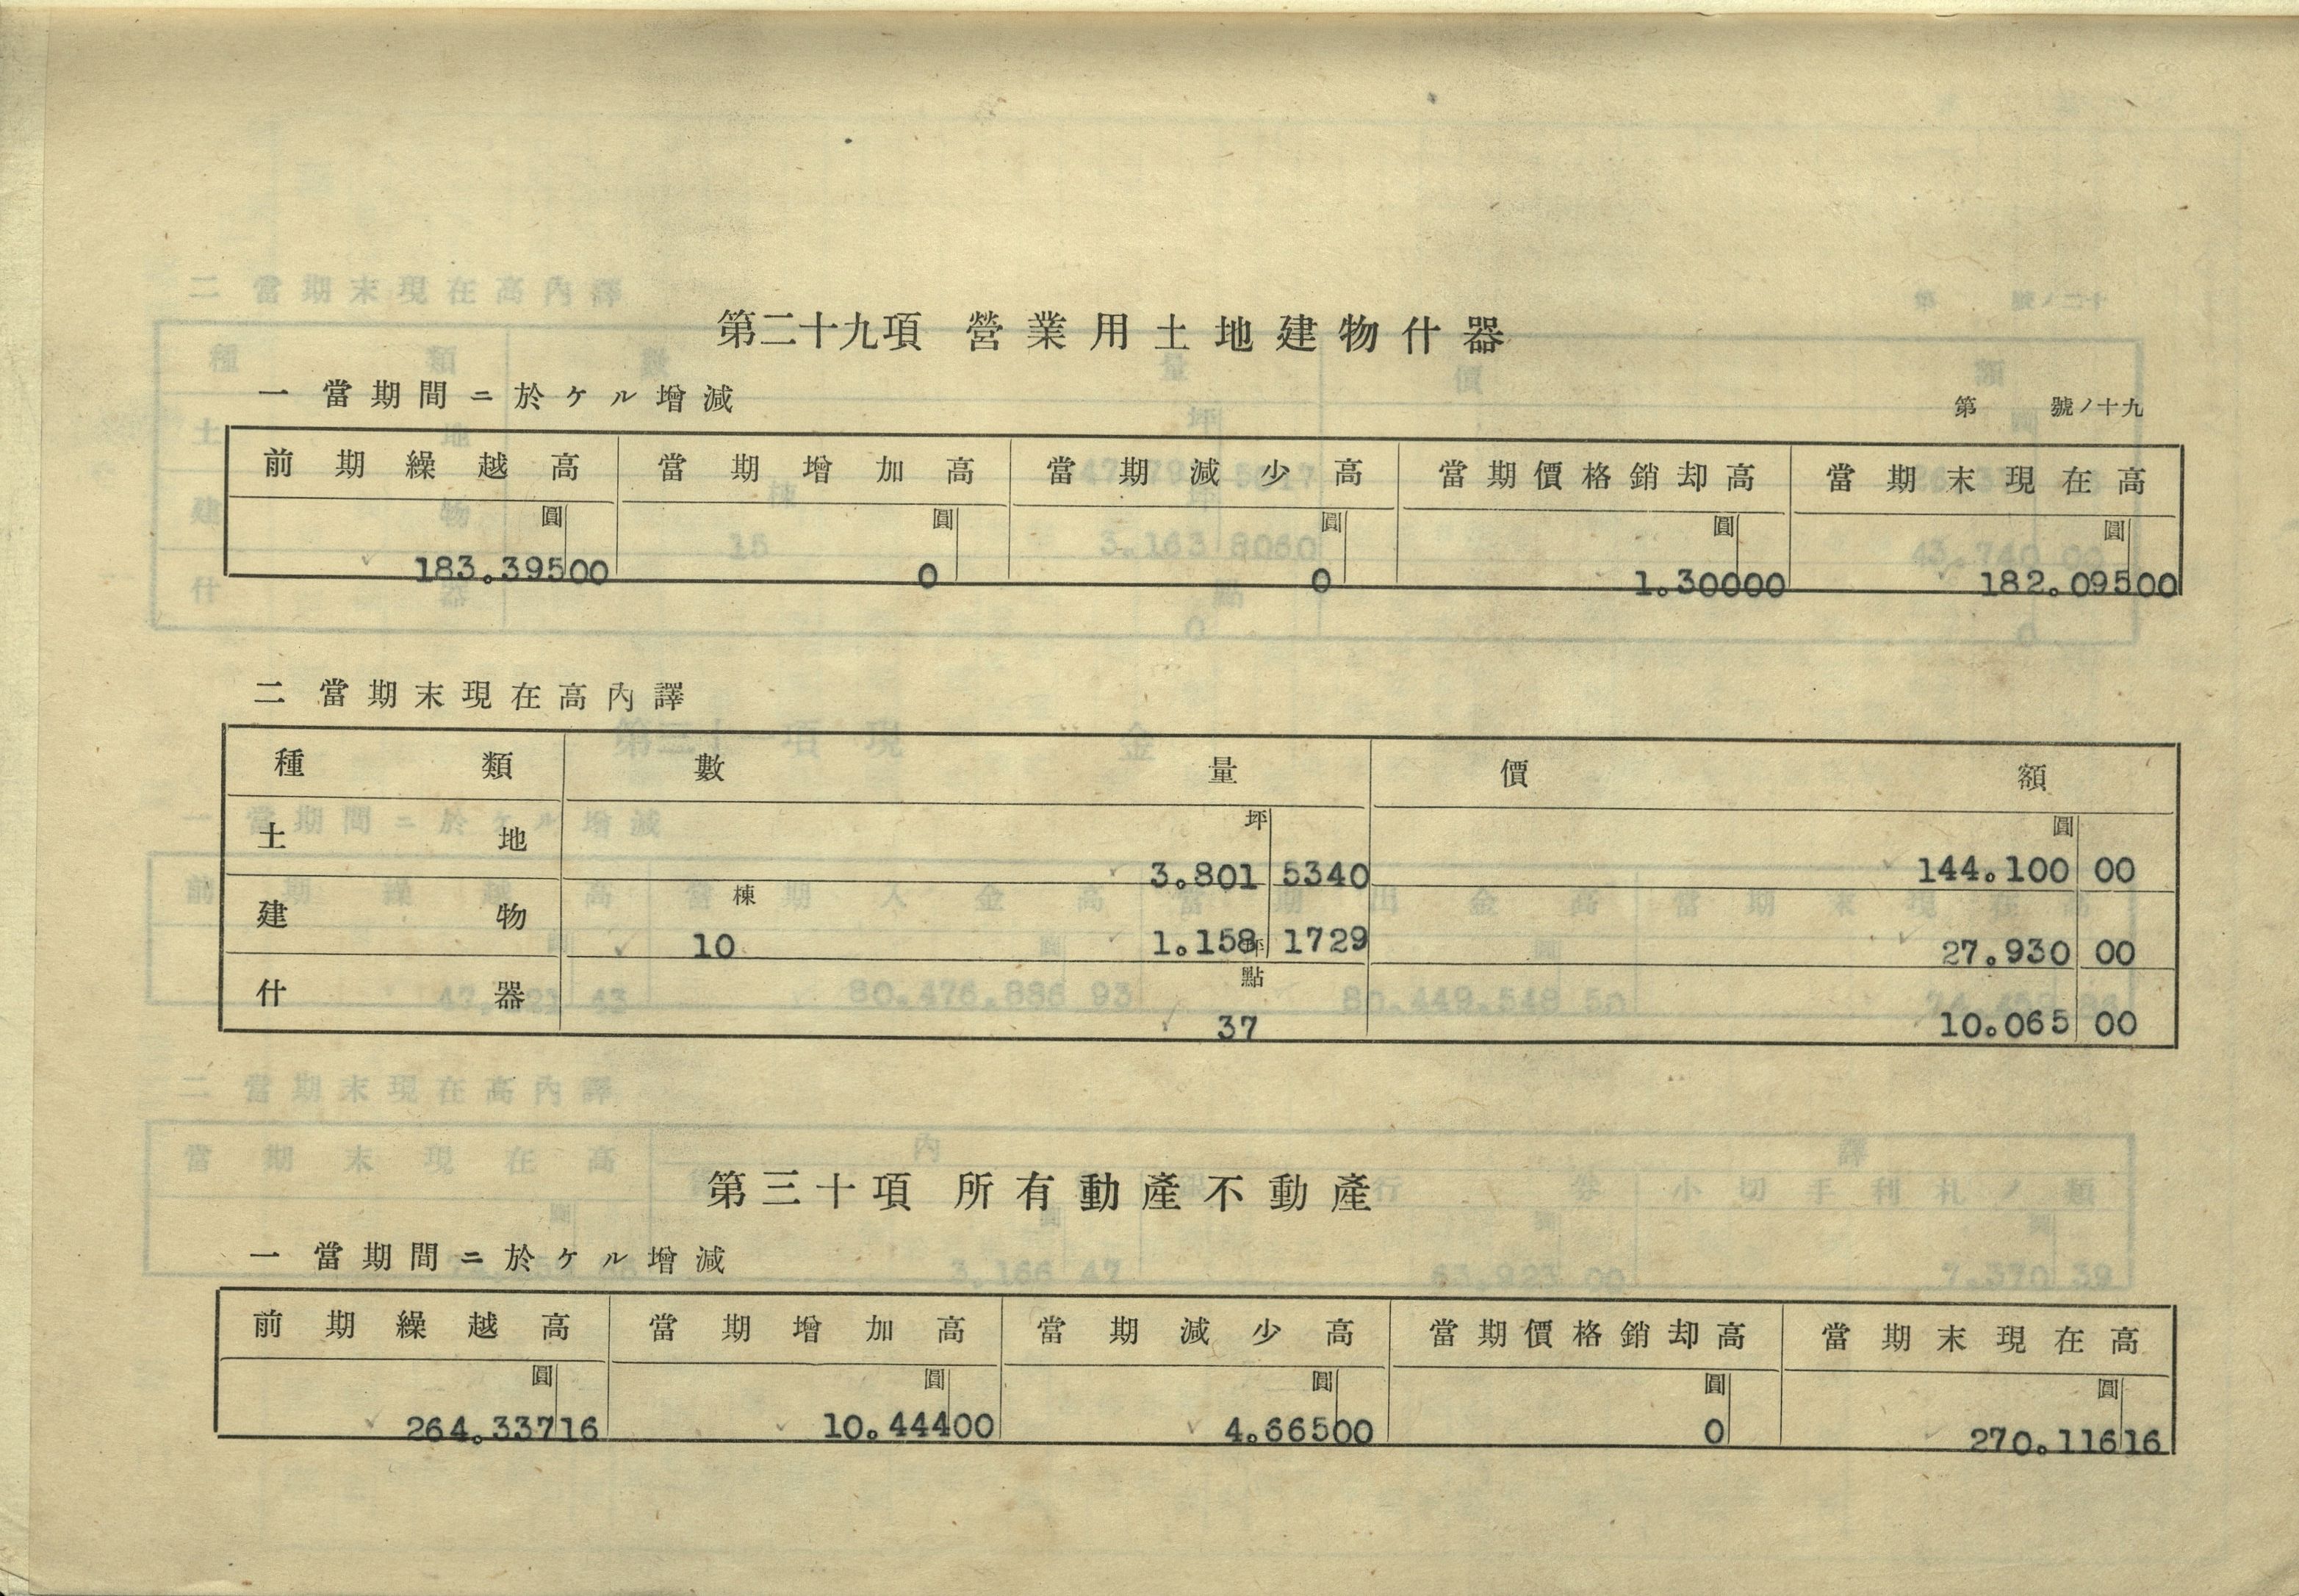 第二十九項 營業用土地建物什器
一 當期間ニ於ケル增減
第 號ノ十九
前期繰越高 當期增加高 當期減少高 當期價格銷却高 當期末現在高
圓 圓 圓 圓 圓
183.395 00 0 0 1.300 00 182.095 00
二 當期末現在高內譯
種類 數量 價額
坪 圓
土地 3.801 5340 144.100 00
棟 坪
建物 10 1.158 1729 27.930 00
點
什器 37 10.065 00
第三十項 所有動產不動產
一 當期間ニ於ケル增減
前期繰越高 當期增加高 當期減少高 當期價格銷却高 當期末現在高
圓 圓 圓 圓 圓
264.337 16 10.444 00 4.665 00 0 270.116 16